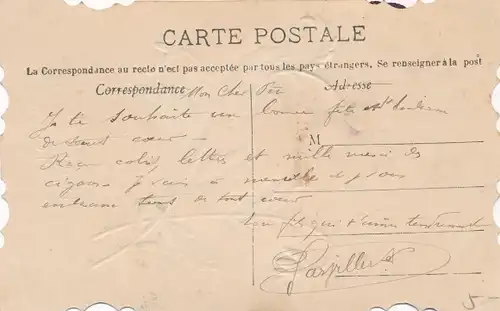 CARTE POSTALE
La Correspondance au recto n'est pas acceptée par tous les pays étrangers. Se renseigner à la post
Correspondance
Adresse
Mon cher
Je te souhaite un bonne fête
de tout cœur
M
Reçu colis, lettres et mille merci des
cigares Je vais à merveille et je vous
embrasse tous de tout cœur
ton fils qui t'aime tendrement
5 -